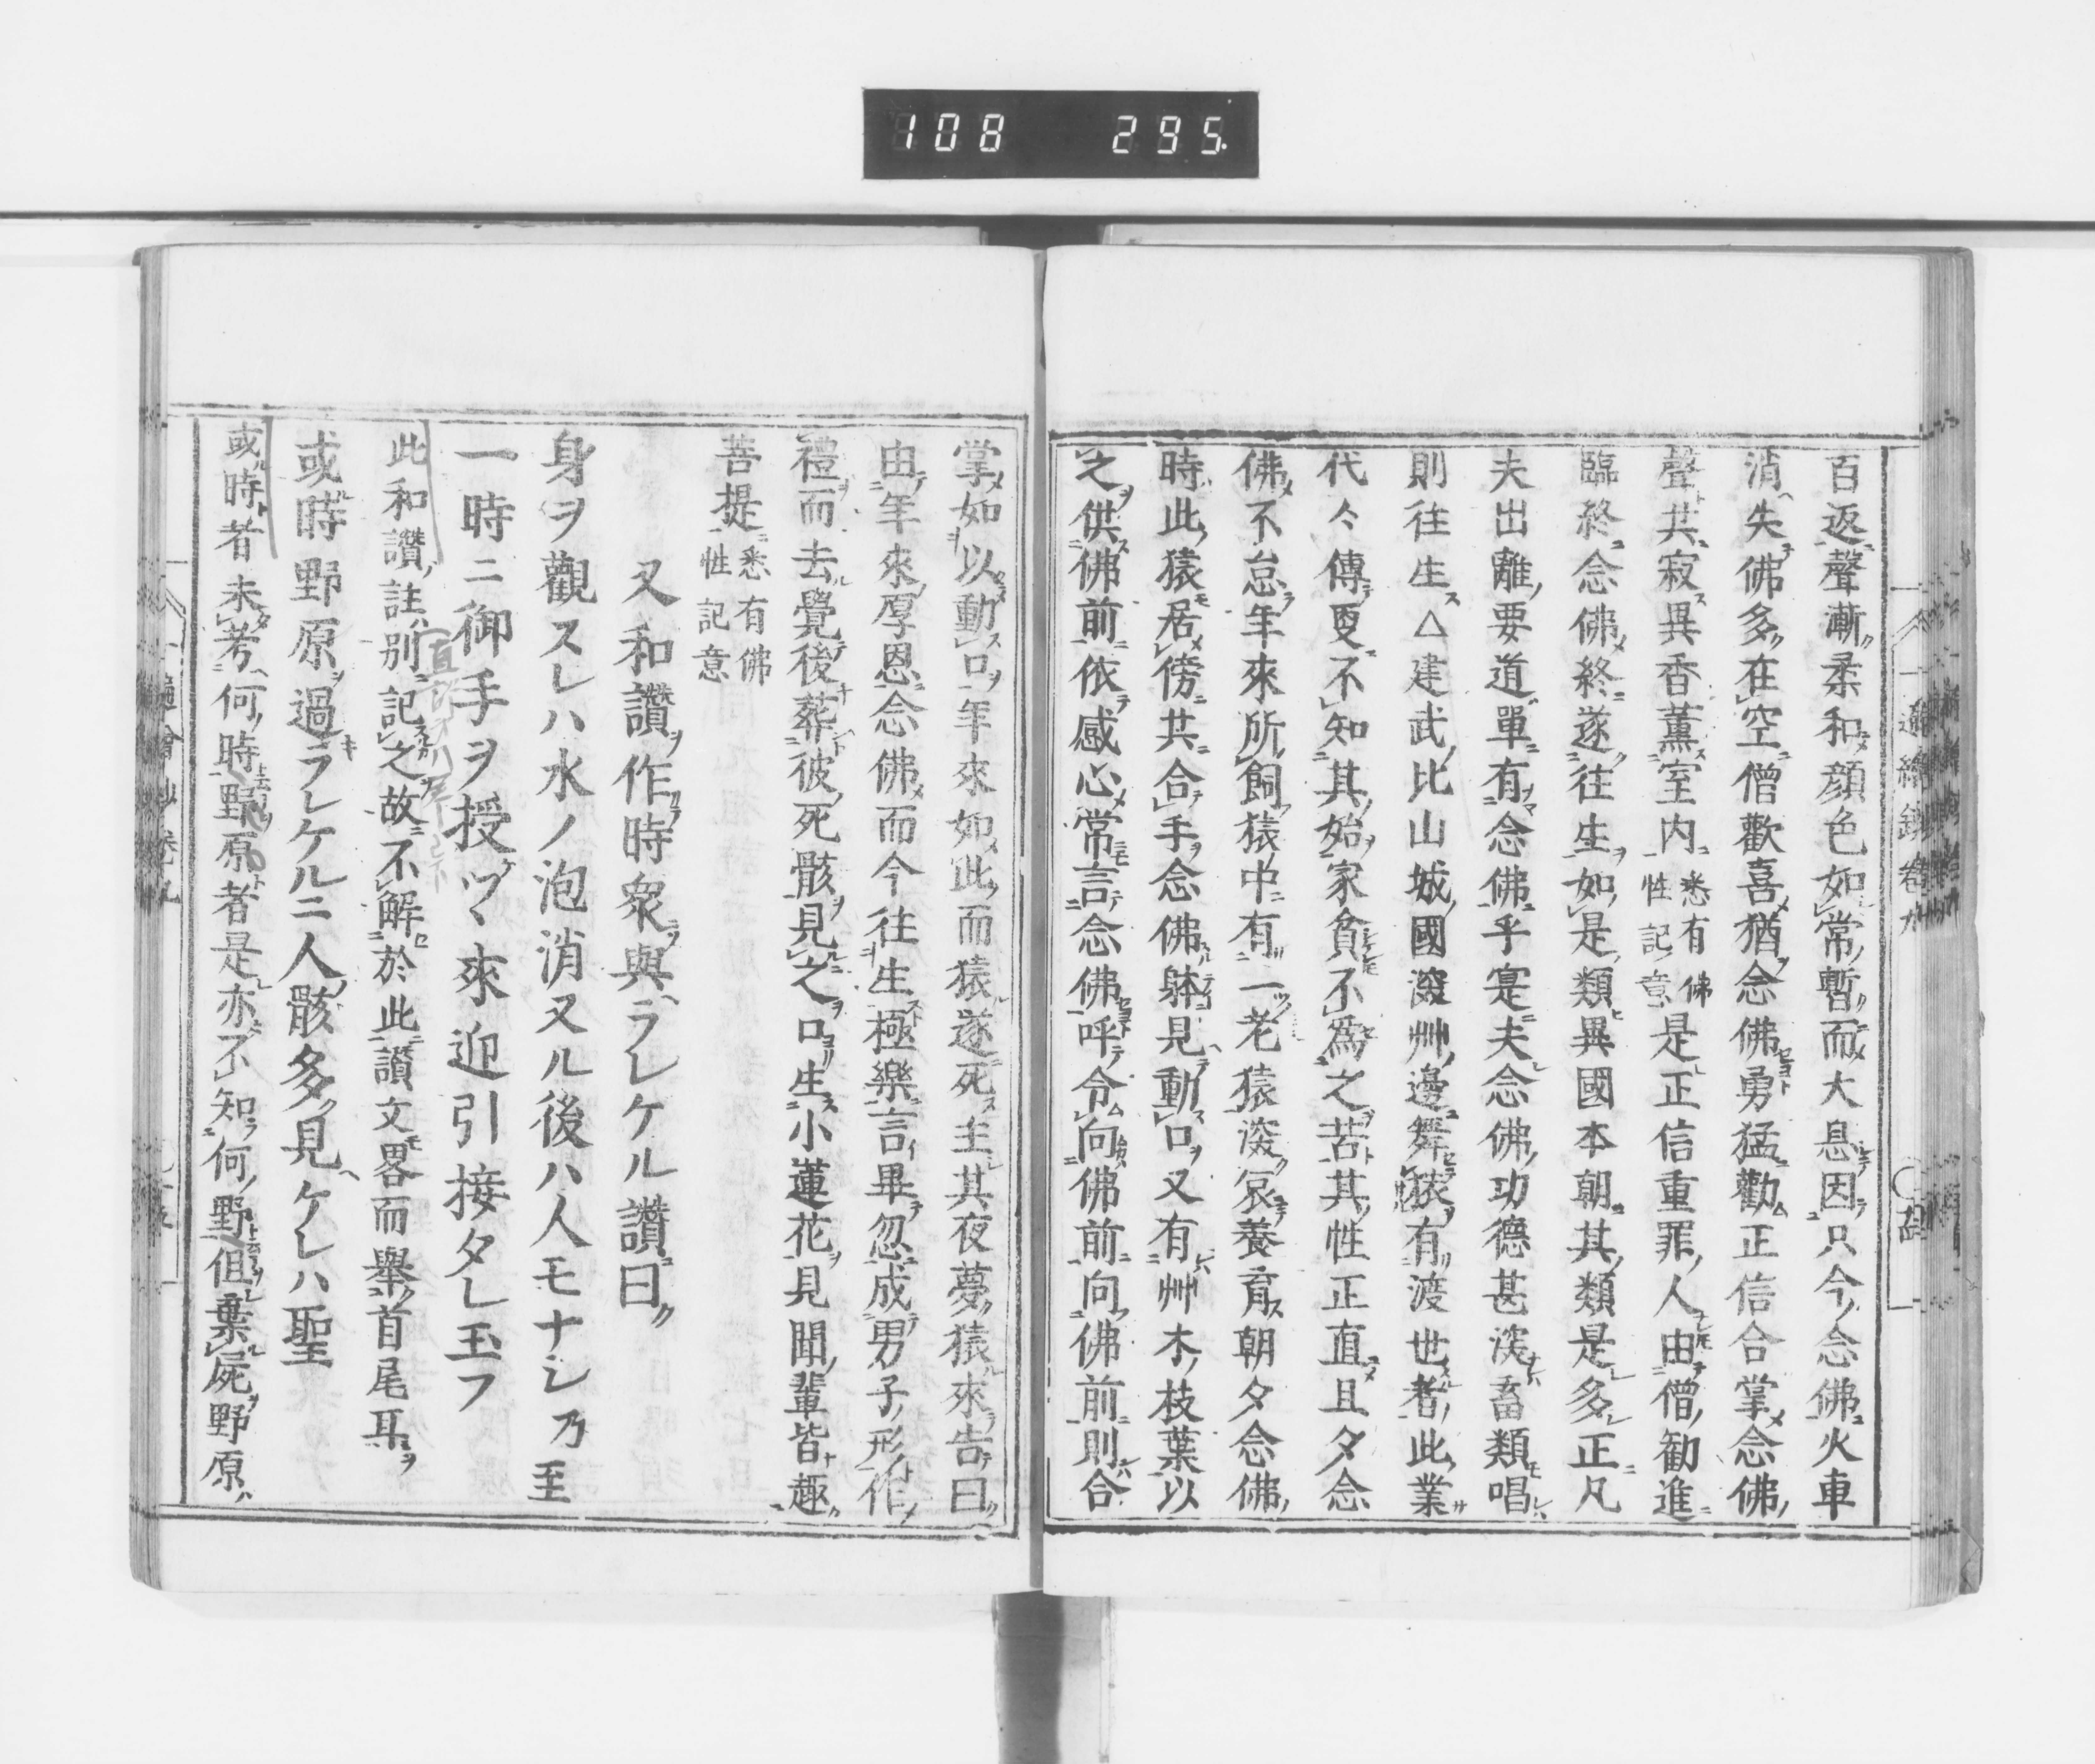 108 295
百返聲漸柔和顔色如常暫而大息因只今念佛火車
消失佛多在空僧歡喜猶念佛勇猛勸正信合掌念佛
聲共寂異香薫室内悉有佛性記意是正信重罪人由僧勧進
臨終念佛終遂往生如是類異國本朝其類是多正凡
夫出離要道單有念佛乎寔夫念佛功德甚深畜類唱
則往生△建武比山城國深艸邊舞猿有渡世者此業
代々傳更不知其始家貧不爲之苦其性正直且夕念
佛不怠年來所飼猿中有一老猿深哀養育朝夕念佛
時此猿居傍共合手念佛躰見動口又有艸木枝葉以
之供佛前依感心常言念佛呼令向佛前向佛前則合
掌如以動口年來如此而猿遂死主其夜夢猿來告曰
由年來厚恩念佛而今往生極樂言畢忽成男子形作
禮而去覺後葬彼死骸見之口生小蓮花見聞輩皆趣
菩提悉有佛性記意
又和讚ヲ作時衆與ラレケル讚曰
身ヲ觀スレハ水ノ泡消又ル後ハ人モナシ乃至
一時ニ御手ヲ授ケツヽ來迎引接タレ玉フ
此和讚註別記之故不解於此讚文畧而舉首尾耳
或時野原過ラレケルニ人骸多見ケレハ聖
或時者未考何時野原者是亦不知何野但棄屍野原